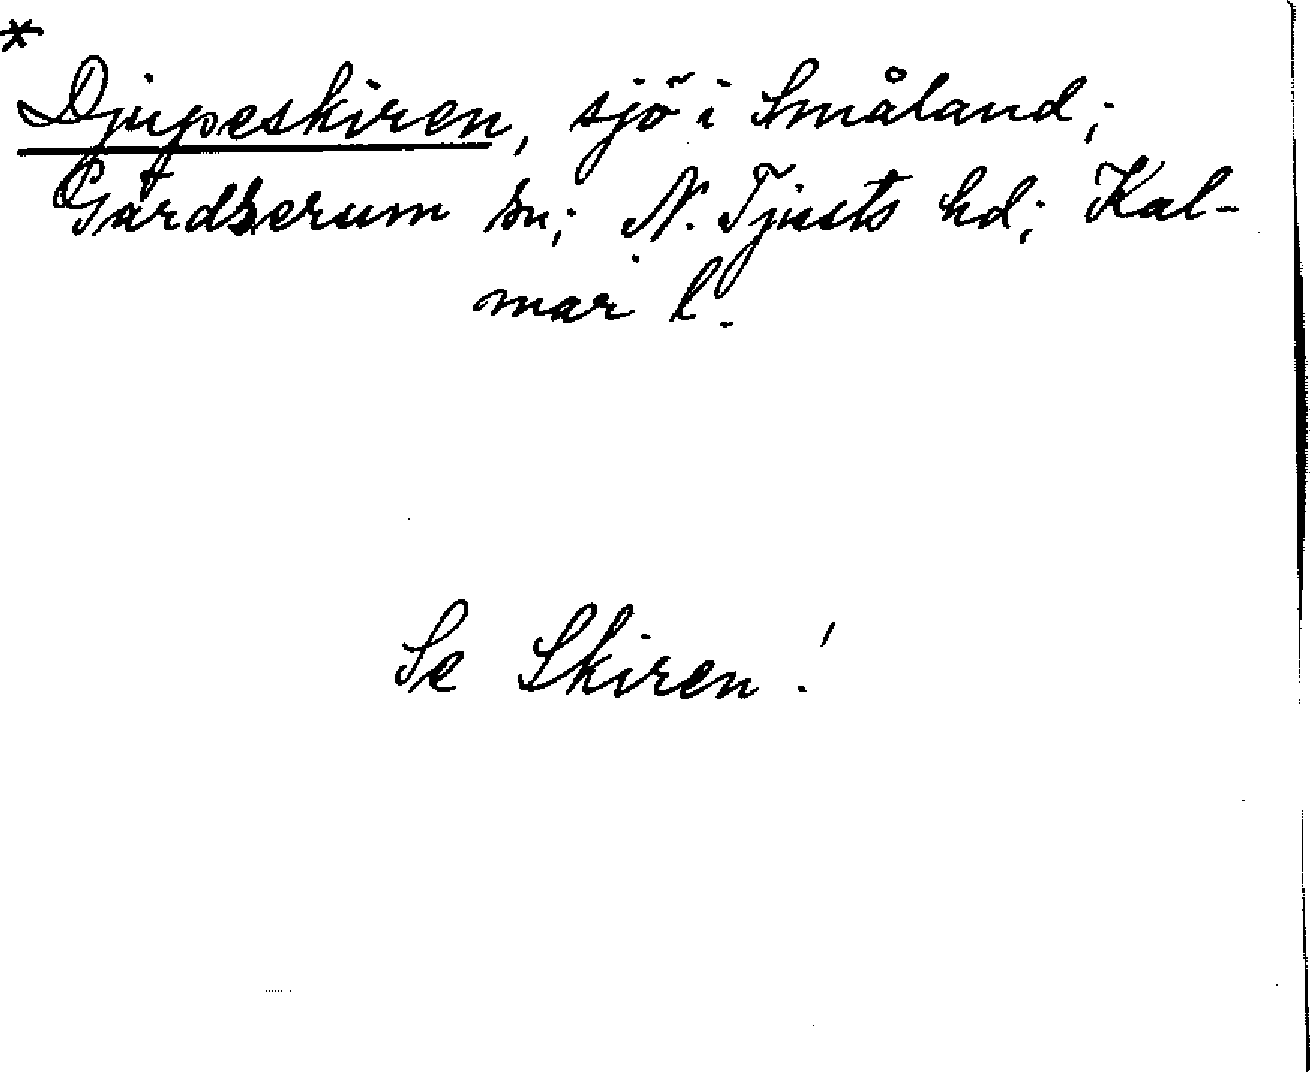 *
Djupeskiren, sjö i Småland;
Gårdserum sn; N. Tjusts hd; Kal-
mar l.
Se Skiren!